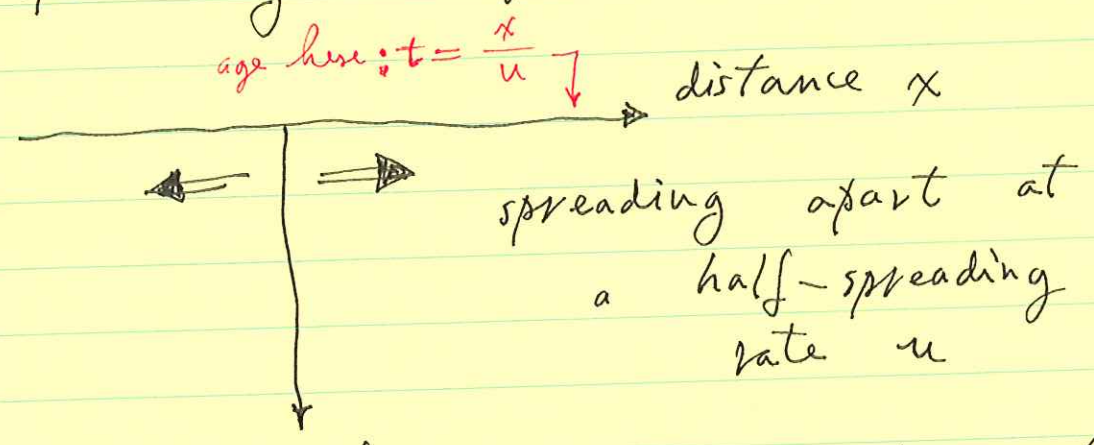 age here: t = x/u
distance x
spreading apart at
a half-spreading
rate u